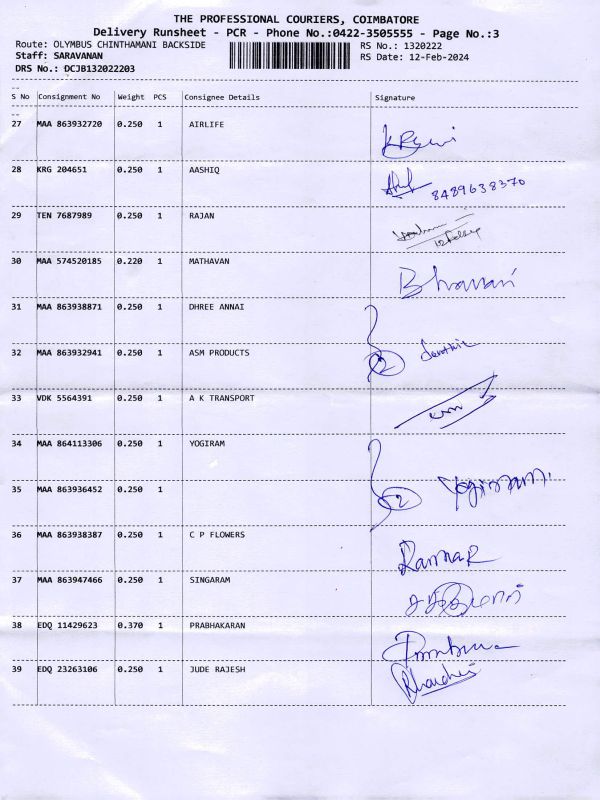 THE PROFESSIONAL COURIERS, COIMBATORE
Delivery Runsheet - PCR - Phone No.:0422-3505555 - Page No.:3
Route: OLYMBUS CHINTHAMANI BACKSIDE RS No.: 1320222
Staff: SARAVANAN RS Date: 12-Feb-2024
DRS No.: DCJB132022203
S No Consignment No Weight PCS Consignee Details Signature
27 MAA 863932720 0.250 1 AIRLIFE
28 KRG 204651 0.250 1 AASHIQ 8489638370
29 TEN 7687989 0.250 1 RAJAN
30 MAA 574520185 0.220 1 MATHAVAN Bhavani
31 MAA 863938871 0.250 1 DHREE ANNAI
32 MAA 863932941 0.250 1 ASM PRODUCTS 2
33 VDK 5564391 0.250 1 A K TRANSPORT
34 MAA 864113306 0.250 1 YOGIRAM
35 MAA 863936452 0.250 1 2 Yogiram.
36 MAA 863938387 0.250 1 C P FLOWERS
37 MAA 863947466 0.250 1 SINGARAM
38 EDQ 11429623 0.370 1 PRABHAKARAN
39 EDQ 23263106 0.250 1 JUDE RAJESH